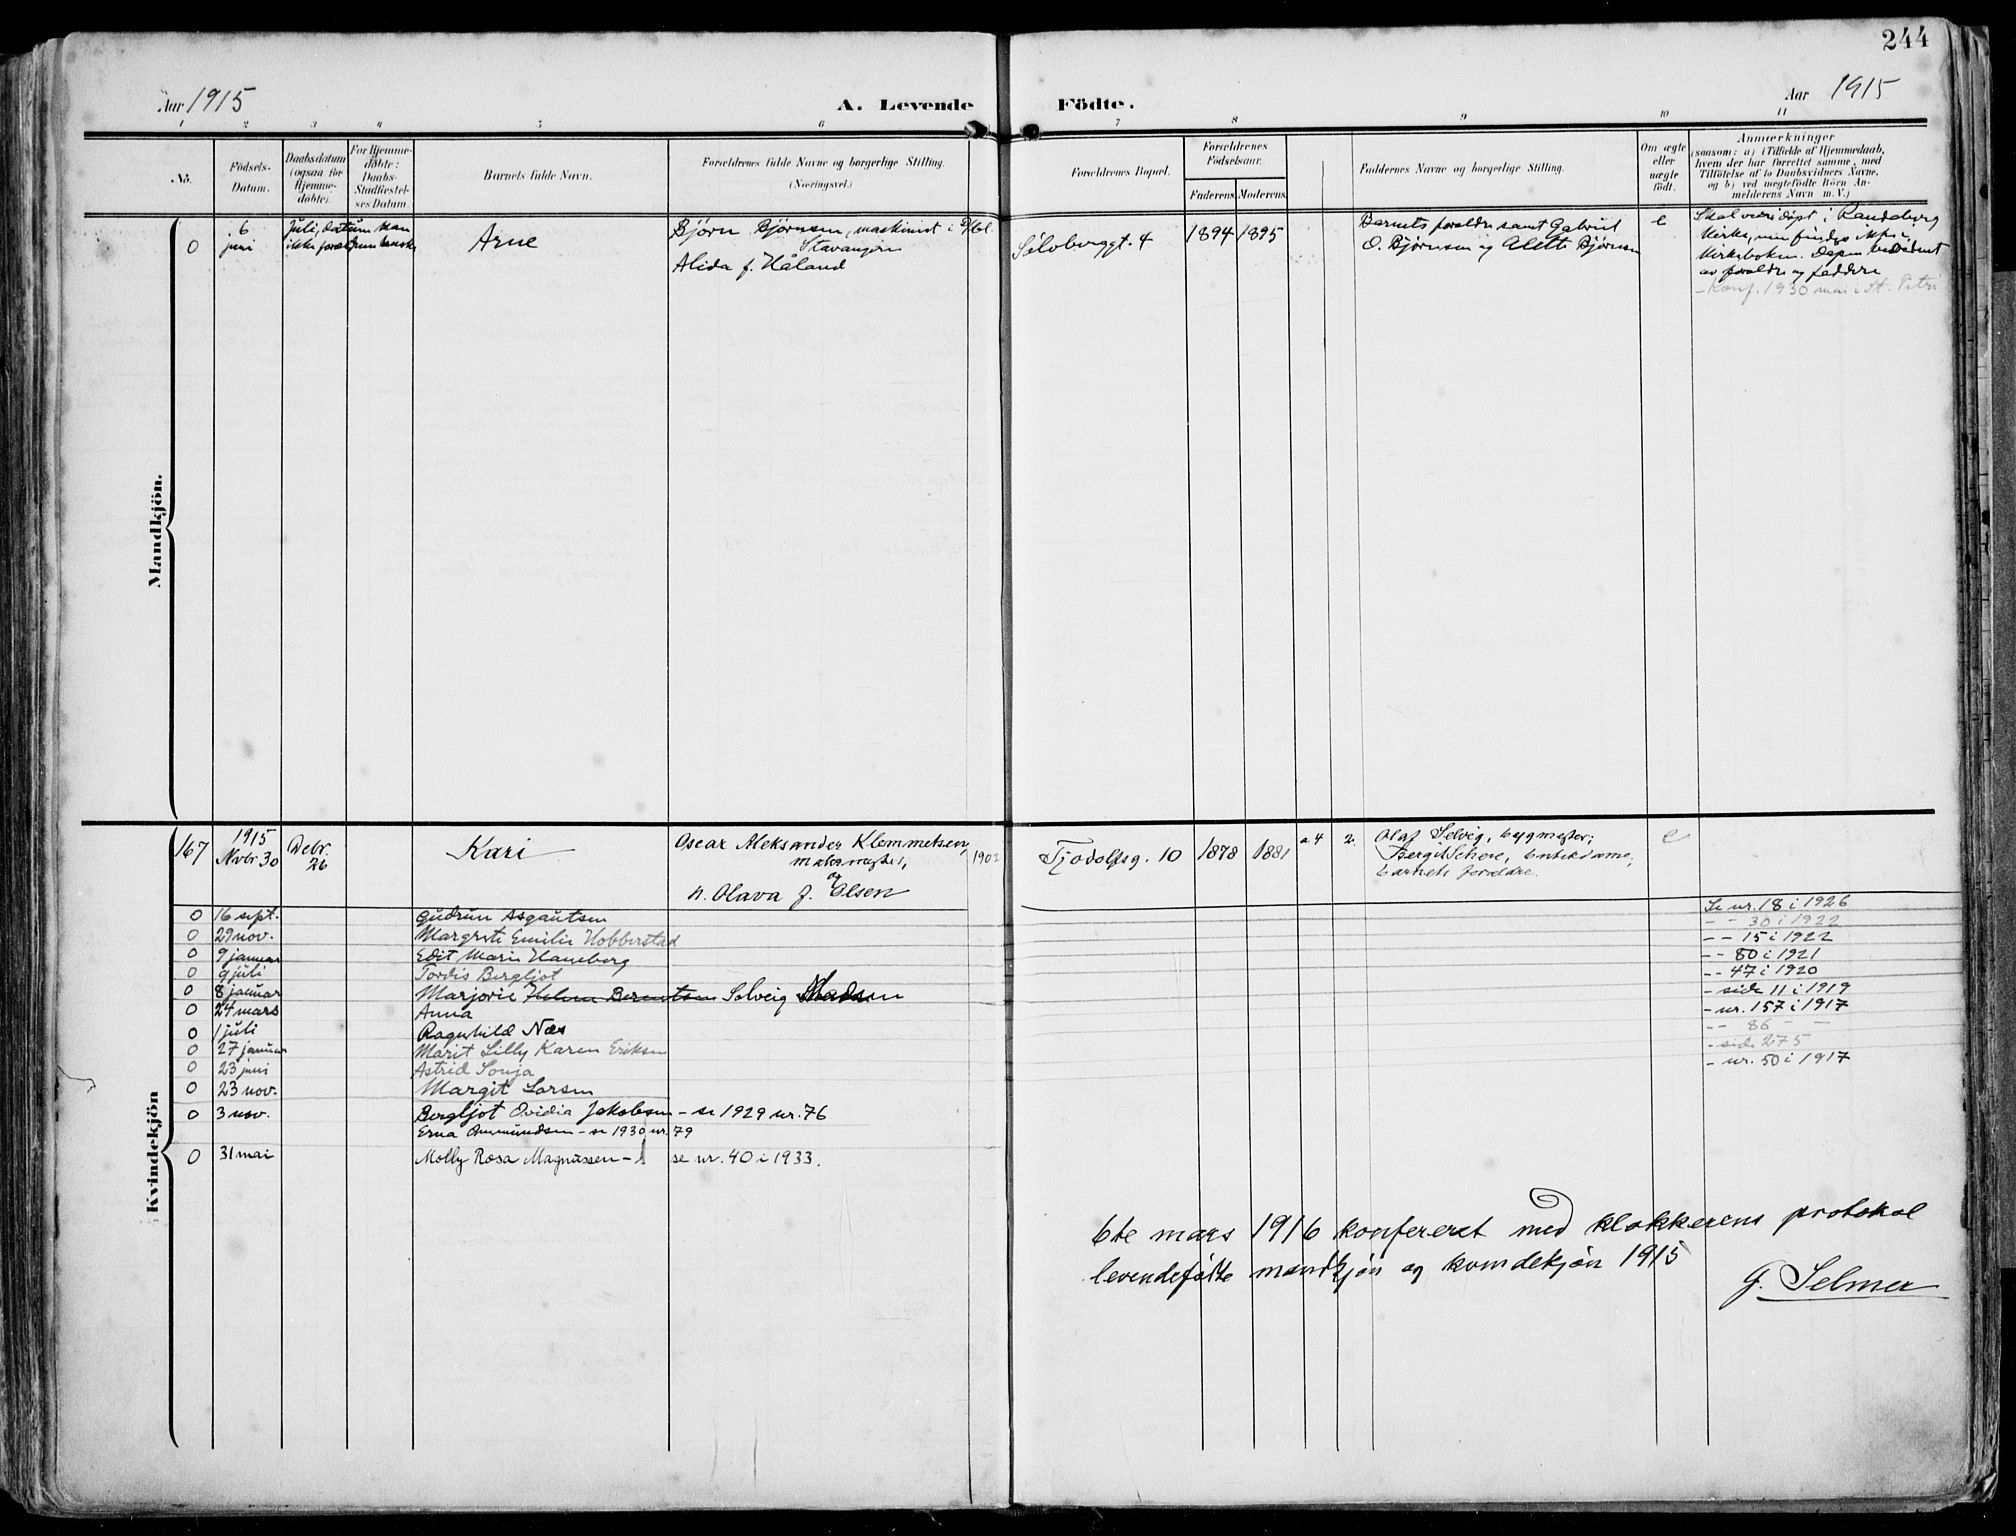 244
Aar 1915
A. Levende Födte.
Aar 1915
1 2 3 4 5 6 7 8 9 10 11
No.
Födsels-
Datum.
Daabsdatum
(ogsaa for
Hjemme-
döbte).
For Hjemme-
döbte:
Daabs-
Stadfæstel-
ses Datum.
Barnets fulde Navn.
Forældrenes fulde Navne og borgerlige Stilling.
(Næringsvei.)
Forældrenes Bopæl.
Forældrenes
Födselsaar.
Faderens Moderens
Faddernes Navne og borgerlige Stilling.
Om ægte
eller
uægte
födt.
Anmærkninger
(saasom: a) i Tilfælde af Hjemmedaab,
hvem der har forrettet samme, med
Tilföielse af to Daabsvidners Navne,
og b) ved uægtefödte Börn An-
melderens Navn m. V.)
Mandkjön.
0
6
juni
Juli, datum kan
ikke
Arne
Bjørn Bjørnsen, maskinist i
Stavanger
Alida f. Håland
Sølvberggt. 4
1894 1895
Barnets foreldre samt Gabriel
O. Bjørnsen og Alette Bjørnsen
e
Skal være døpt i Randaberg
kirke, men findes ikke i
kirkeboken. Dåpen bevidnet
av foreldre og faddere
- Konf. 1930 mai i St. Petri
Kvindekjön
167
1915
Nvbr 30
Debr.
26
Kari
Oscar Aleksander Klemmetsen,
malermester,
og
h. Olava f. Olsen
1902
Tjodolfsg. 10
1878 1881
a 4 2.
Olaf Selvig, bygmester;
Bergit Schere, butikdame;
barnets forældre.
e
0 16 sept. Gudrun Asgautsen Se nr. 18 i 1926
0 29 nov. Margrete Emilie Hobberstad - - 30 i 1922
0 9 januar Edit Marie Haneberg - - 15 i 1922
0 9 juli Tordis Bergljot - - 80 i 1921
0 8 januar Marjorie Helene Berentsen Solveig Madsen - - 47 i 1920
0 24 mars Anna - side 11 i 1919
0 1 juli Ragnhild Næs - nr. 157 i 1917
0 27 januar Marit Lilly Karen Eriksen - - 86 - -
0 23 juni Astrid Sonja - side 275
0 23 nov. Margit Larsen - nr. 50 i 1917
0 3 nov. Bergljot Ovidia Jakobsen - se 1929 nr. 76
Erna Ommundsen - se 1930 nr. 79
0 31 mai Molly Rosa Magnussen - se nr. 40 i 1933.
6te mars 1916 konfereret med klokkerens protokol
levendefødte mandkjøn og kvindekjøn 1915
G. Selmer